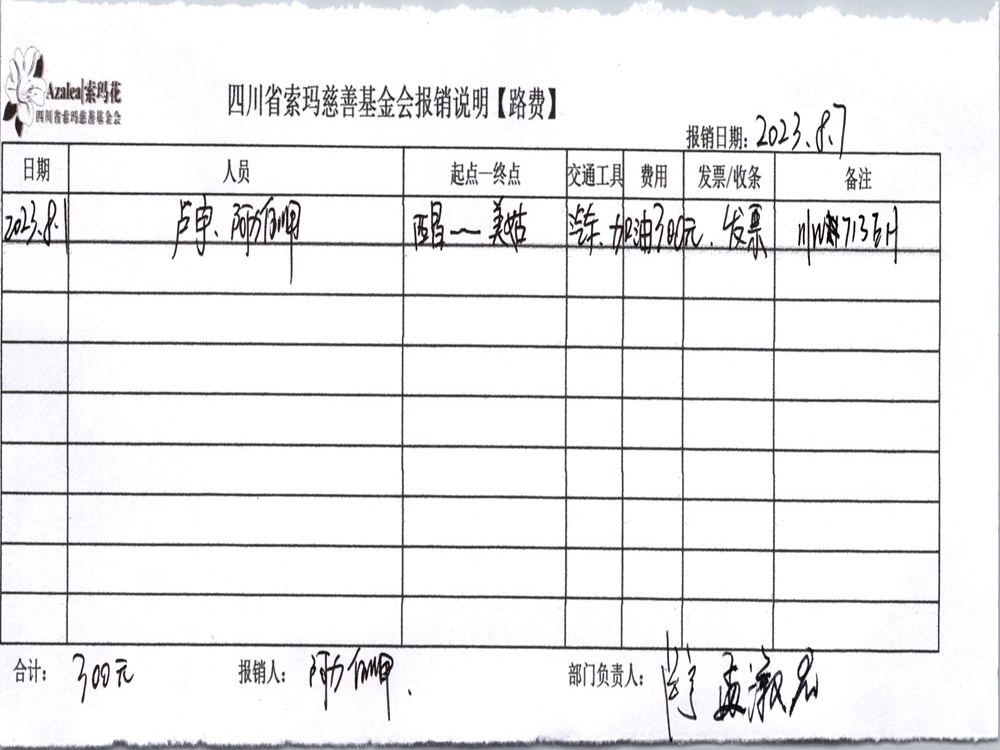 Azalea|索玛花
四川省索玛慈善基金会
四川省索玛慈善基金会报销说明【路费】
报销日期：2023.8.7
日期 人员 起点—终点 交通工具 费用 发票/收条 备注
2023.8.1 卢申、阿力伯呷 西昌—美姑 汽车、加油300元、发票 川W7135H
合计：300元 报销人：阿力伯呷、 部门负责人：